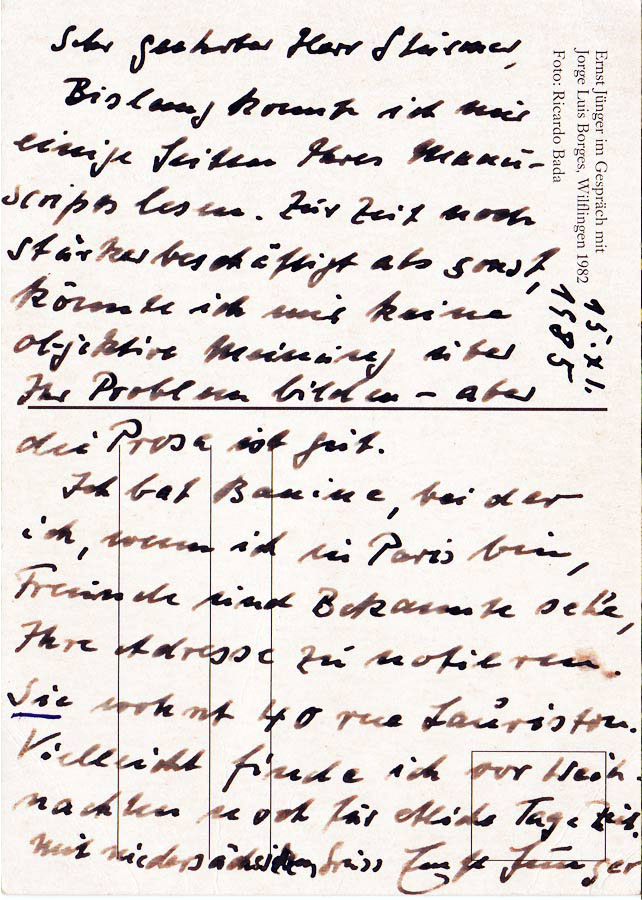 Sehr geehrter Herr Stürmer,
Bislang konnte ich nur
einige Seiten Ihres Manu-
scripts lesen. Zur Zeit noch
stärker beschäftigt als sonst,
könnte ich mir keine
objektive Meinung über
Ihr Problem bilden – aber
die Prosa ist gut.
Ich bat Banine, bei der
ich, wenn ich in Paris bin,
Freunde und Bekannte sehe,
Ihre Adresse zu notieren.
Sie wohnt 40 rue Lauriston.
Vielleicht finde ich vor Weih-
nachten noch für etliche Tage Zeit.
Mit niedersächsischem Gruss Ernst Jünger
Ernst Jünger im Gespräch mit
Jorge Luis Borges, Wilflingen 1982
Foto: Ricardo Bada
15.XI.
1985